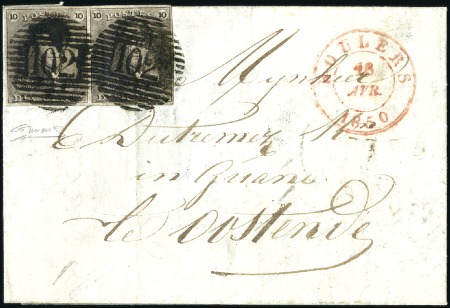 10 POSTES 10 10 POSTES 10
102 102
ROULERS
13
AVR.
1850
Mynheer
Dutremez
in quane
te Oostende